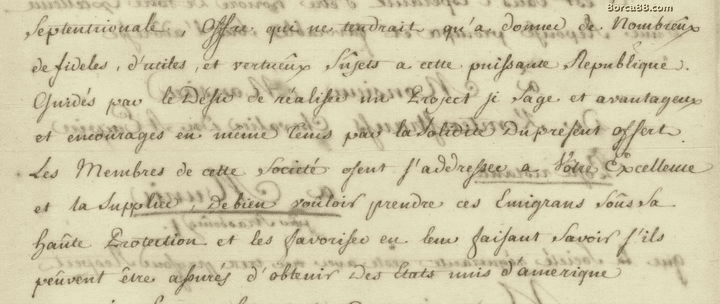 Borca88.com
Septentrionale, Offre qui ne tendrait qu'a donner de Nombreux
de fideles, d'utiles, et vertueux Sujets a cette puissante Republique.
Guidés par le Desir de réaliser un Project si Sage et avantageux
et encouragés en meme tems par la Solidité Du present offert
Les Membres de cette Société osent s'addresser a Votre Excellence
et la Supplier, de bien vouloir prendre ces Emigrans Sous Sa
haûte Protection et les favoriser en leur faisant Savoir s'ils
peûvent être assurés d'obtenir Des Etats unis d'amerique